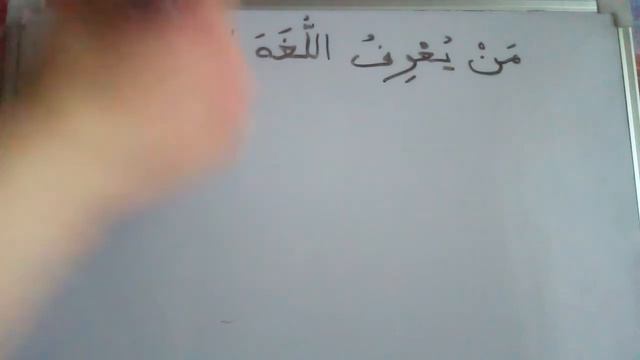 مَنْ يُعْرِفُ اللُّغَةَ